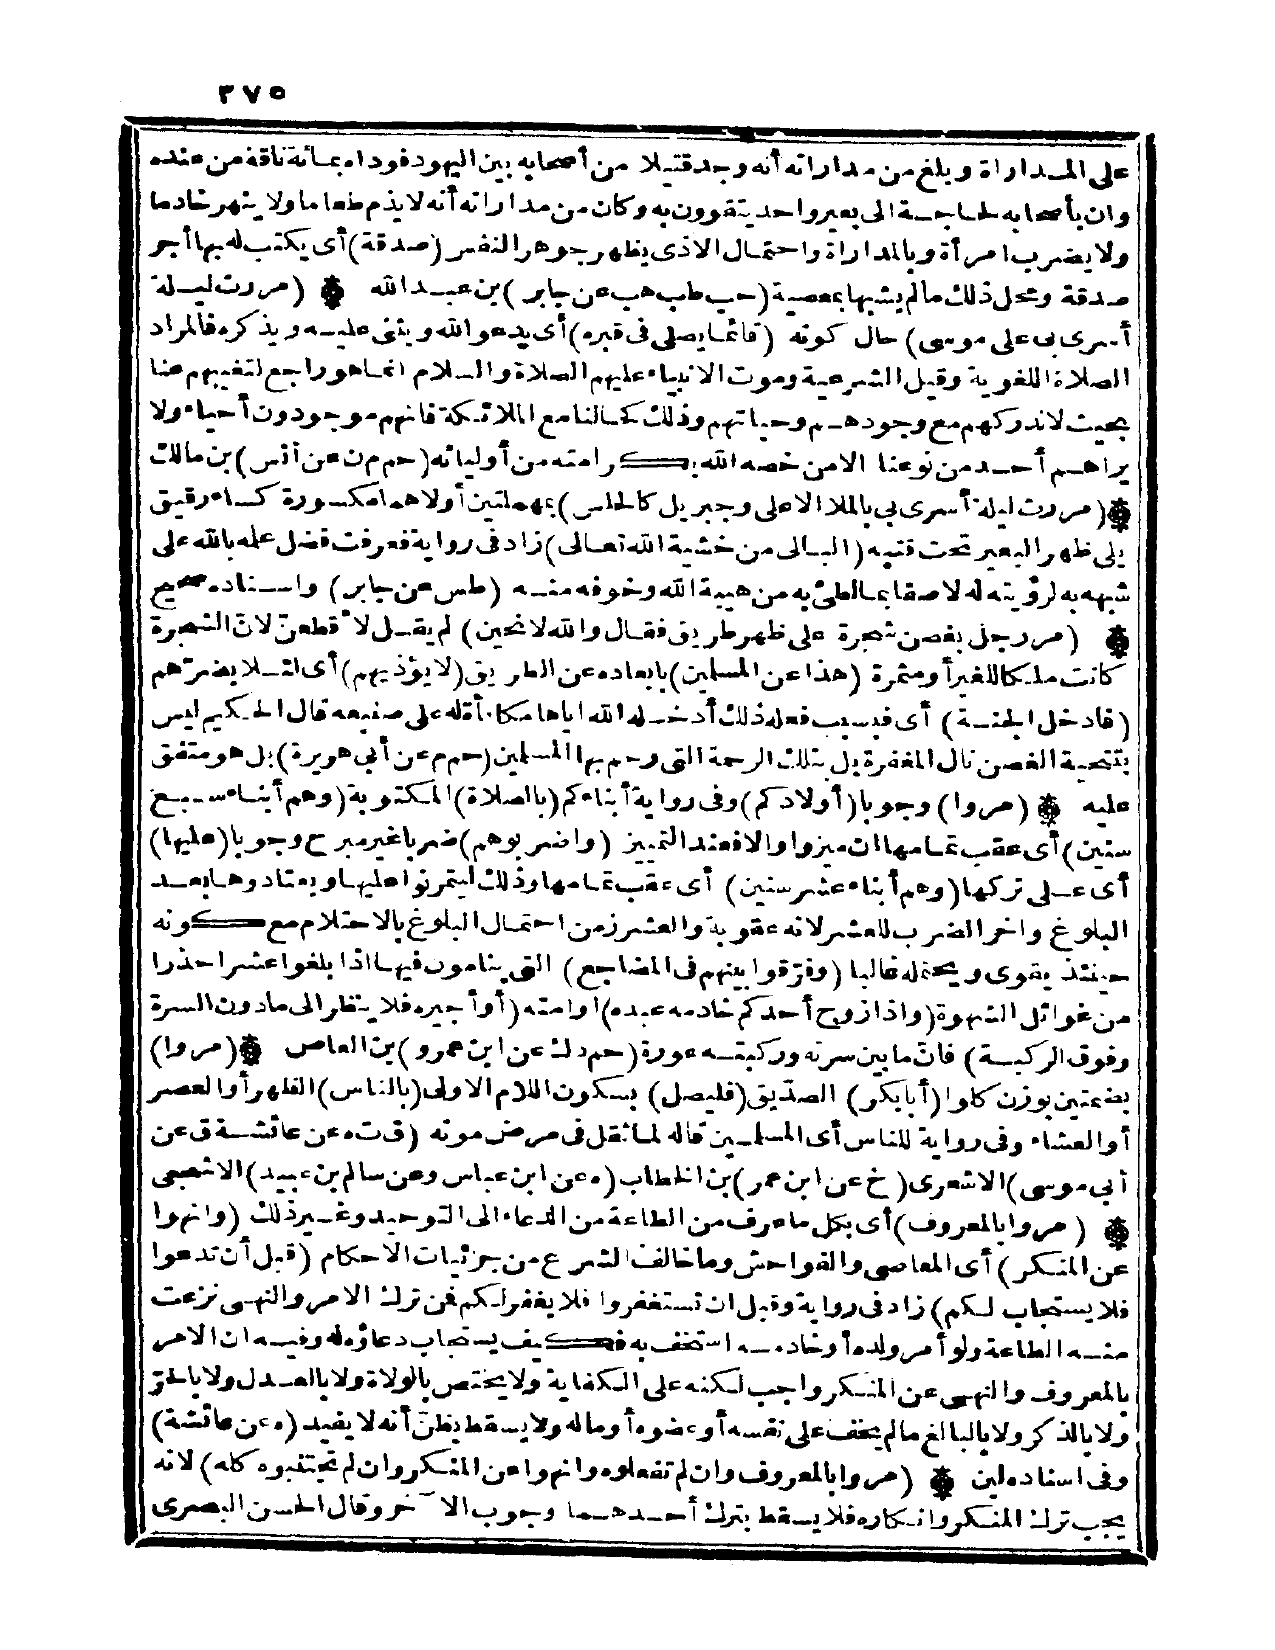 ٣٧٥
على المداراة وبلغ من مداراته أنه وجد قتيلا من أصحابه بين اليهود فوداه بمائة ناقة من عنده
وان بأصحابه لحاجة الى بعير واحد يتقوون به وكان من مداراته أنه لا يذم طعاما ولا ينهر خادما
ولا يضرب امرأة وبالمداراة واحتمال الاذى يظهر جوهر النفس (صدقة) أى يكتب له بها أجر
صدقة ومحل ذلك ما لم يشبها بمعصية (حب طب هب عن جابر) بن عبد الله ۞ (مررت ليلة
أسرى بى على موسى) حال كونه (قائما يصلى فى قبره) أى يدعو الله ويثنى عليه ويذكره فالمراد
الصلاة اللغوية وقيل الشرعية وموت الانبياء عليهم الصلاة والسلام انما هو راجع لتغيبهم عنا
بحيث لاندركهم مع وجودهم وحياتهم وذلك كحالنا مع الملائكة فانهم موجودون أحياء ولا
يراهم أحد من نوعنا الا من خصه الله بكرامته من أوليائه (حم م ن عن أنس) بن مالك
۞ (مررت ليلة أسرى بي بالملا الاعلى وجبريل كالحلس) بمهملتين أولاهما مكسورة كساء رقيق
يلى ظهر البعير تحت قتبه (البالى من خشية الله تعالى) زاد فى رواية فعرفت فضل علمه بالله على
شبهه به لرؤيته له لاصقا بما لطئ به من هيبة الله وخوفه منه (طس عن جابر) واسناده صحيح
۞ (مر رجل بغصن شجرة على ظهر طريق فقال والله لانحين) لم يقل لا قطعن لان الشجرة
كانت ملكا للغير أو مثمرة (هذا عن المسلمين) بابعاده عن الطريق (لا يؤذيهم) أى لئلا يضرهم
(فادخل الجنة) أى فبسبب فعله ذلك أدخله الله اياها مكافأة له على صنيعه قال الحكيم ليس
بتنحية الغصن نال المغفرة بل بتلك الرحمة التى رحم بها المسلمين (حم م عن أبي هريرة) بل هو متفق
عليه ۞ (مروا) وجوبا (أولادكم) وفى رواية أبناءكم (بالصلاة) المكتوبة (وهم أبناء سبع
سنين) أى عقب تمامها ان ميزوا والا فعند التمييز (واضربوهم) ضربا غير مبرح وجوبا (عليها)
أى على تركها (وهم أبناء عشر سنين) أى عقب تمامها وذلك ليتمرنوا عليها ويعتادوها بعد
البلوغ واخر الضرب للعشر لانه عقوبة والعشر زمن احتمال البلوغ بالاحتلام مع كونه
حينئذ يقوى ويحتمله غالبا (وفرقوا بينهم فى المضاجع) التى ينامون فيها اذا بلغوا عشرا حذرا
من غوائل الشهوة (واذا زوج أحدكم خادمه عبده) أو أمته (أو أجيره فلا ينظر الى مادون السرة
وفوق الركبة) فان مابين سرته وركبته عورة (حم د ك عن ابن عمرو) بن العاص ۞ (مروا)
بضمتين بوزن كلوا (أبا بكر) الصديق (فليصل) بسكون اللام الاولى (بالناس) الظهر أو العصر
أو العشاء وفى رواية للناس أى المسلمين قاله لما ثقل فى مرض موته (ق ت ه عن عائشة ق عن
أبى موسى) الاشعرى (خ عن ابن عمر) بن الخطاب (ه عن ابن عباس وعن سالم بن عبيد) الاشجعى
۞ (مروا بالمعروف) أى بكل ماعرف من الطاعة من الدعاء الى التوحيد وغير ذلك (وانهوا
عن المنكر) أى المعاصى والفواحش وما خالف الشرع من جزئيات الاحكام (قبل أن تدعوا
فلا يستجاب لكم) زاد فى رواية وقبل ان تستغفروا فلا يغفر لكم فمن ترك الامر والنهى نزعت
منه الطاعة ولو أمر ولده أو خادمه استخف به فكيف يستجاب دعاؤه له وفيه ان الامر
بالمعروف والنهى عن المنكر واجب لكنه على الكفاية ولا يختص بالولاة ولا بالعدل ولا بالحر
ولا بالذكر ولا بالبالغ ما لم يخف على نفسه أو عضوه أو ماله ولا يسقط بظن أنه لا يفيد (ه عن عائشة)
وفى اسناده لين ۞ (مروا بالمعروف وان لم تفعلوه وانهوا عن المنكر وان لم تجتنبوه كله) لانه
يجب ترك المنكر وانكاره فلا يسقط بترك أحدهما وجوب الآخر وقال الحسن البصرى